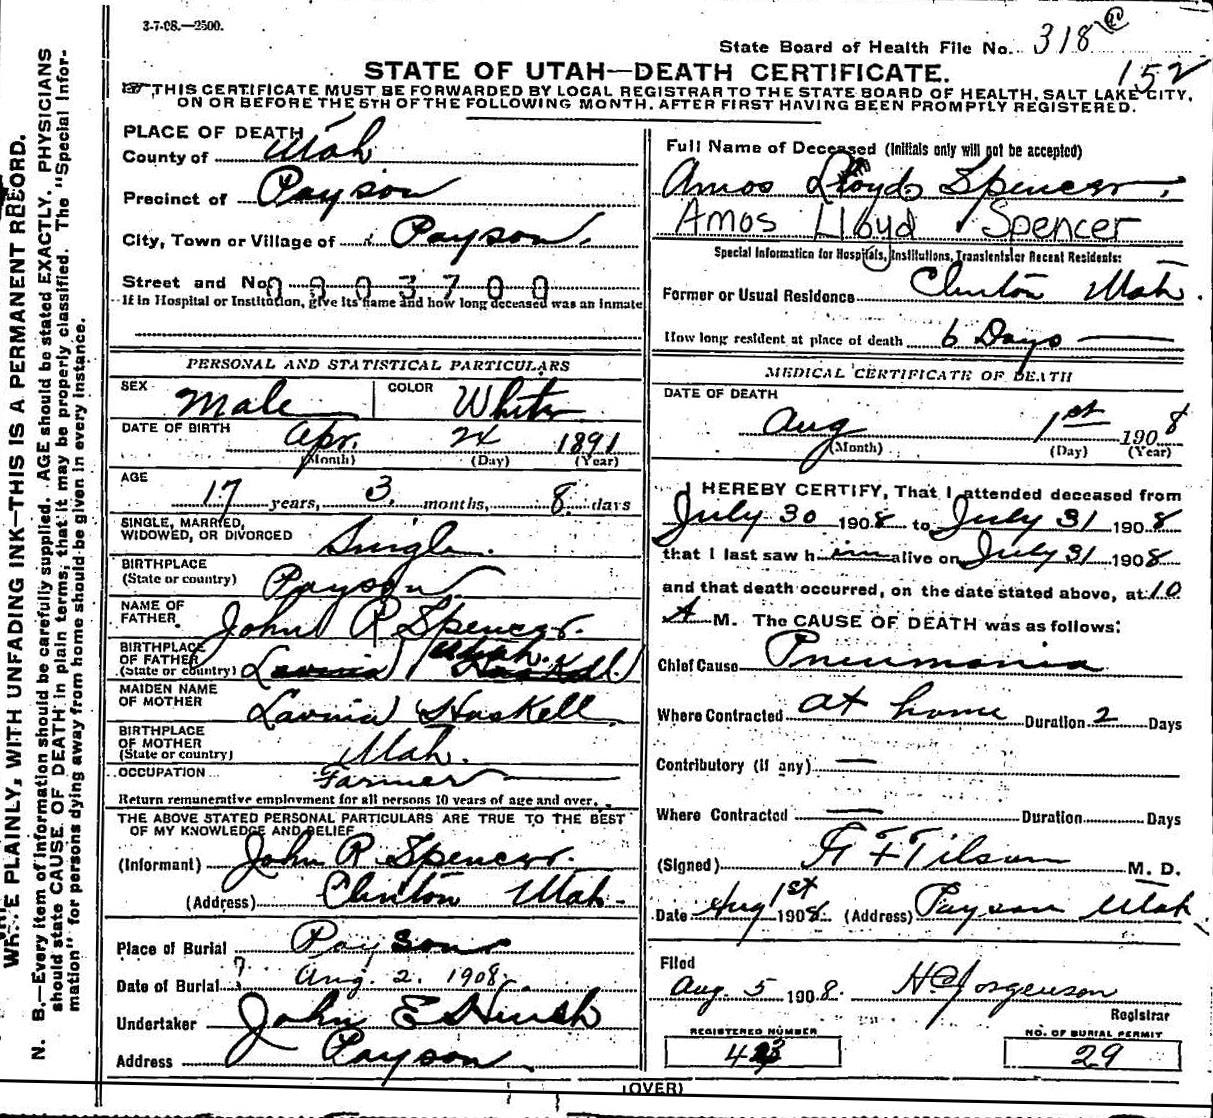 3-7-08.—2500.
State Board of Health File No. 318
152
STATE OF UTAH—DEATH CERTIFICATE.
THIS CERTIFICATE MUST BE FORWARDED BY LOCAL REGISTRAR TO THE STATE BOARD OF HEALTH, SALT LAKE CITY,
ON OR BEFORE THE 5TH OF THE FOLLOWING MONTH, AFTER FIRST HAVING BEEN PROMPTLY REGISTERED.
PLACE OF DEATH
County of Utah
Precinct of Payson
City, Town or Village of Payson.
Street and No. 0803700
If in Hospital or Institution, give its name and how long deceased was an inmate
PERSONAL AND STATISTICAL PARTICULARS
SEX Male COLOR White
DATE OF BIRTH Apr. 24 1891
(Month) (Day) (Year)
AGE 17 years, 3 months, 8 days
SINGLE, MARRIED,
WIDOWED, OR DIVORCED Single.
BIRTHPLACE
(State or country) Payson
NAME OF
FATHER John R Spencer.
BIRTHPLACE
OF FATHER
(State or country) Lavinia Haskell Utah.
MAIDEN NAME
OF MOTHER Lavinia Haskell.
BIRTHPLACE
OF MOTHER
(State or country) Utah.
OCCUPATION Farmer
Return remunerative employment for all persons 10 years of age and over.
THE ABOVE STATED PERSONAL PARTICULARS ARE TRUE TO THE BEST
OF MY KNOWLEDGE AND BELIEF
(Informant) John R Spencer.
(Address) Clinton Utah.
Place of Burial Payson
Date of Burial Aug. 2. 1908.
Undertaker John E Huish
Address Payson.
Full Name of Deceased (Initials only will not be accepted)
Amos Lloyd Spencer.
Amos Lloyd Spencer
Special Information for Hospitals, Institutions, Transients or Recent Residents:
Former or Usual Residence Clinton Utah.
How long resident at place of death 6 Days
MEDICAL CERTIFICATE OF DEATH
DATE OF DEATH
Aug 1st 1908
(Month) (Day) (Year)
I HEREBY CERTIFY, That I attended deceased from
July 30 1908 to July 31 1908
that I last saw him alive on July 31 1908
and that death occurred, on the date stated above, at 10
A M. The CAUSE OF DEATH was as follows:
Chief Cause Pneumonia
Where Contracted at home Duration 2 Days
Contributory (if any) —
Where Contracted — Duration Days
(Signed) F Tilson M. D.
Date Aug 1st 1908 (Address) Payson Utah
Filed
Aug. 5 1908. Jorgenson
Registrar
REGISTERED NUMBER
NO. OF BURIAL PERMIT
29
(OVER)
WRITE PLAINLY, WITH UNFADING INK—THIS IS A PERMANENT RECORD.
N. B.—Every item of information should be carefully supplied. AGE should be stated EXACTLY. PHYSICIANS
should state CAUSE OF DEATH in plain terms, that it may be properly classified. The "Special Infor-
mation" for persons dying away from home should be given in every instance.